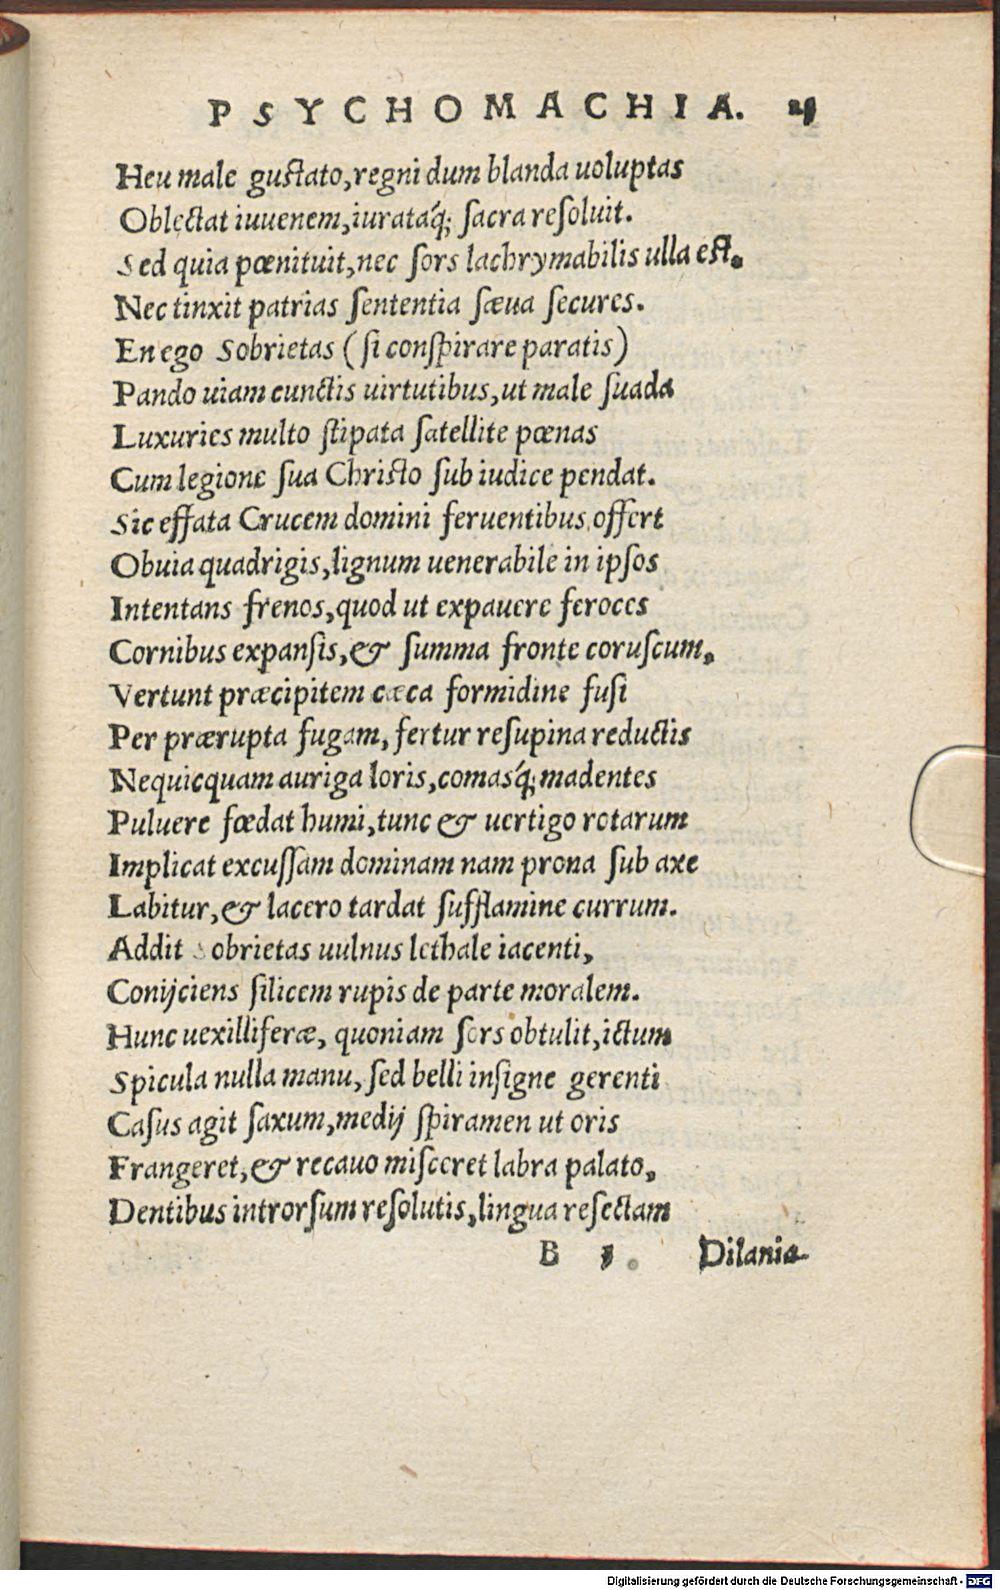 PSYCHOMACHIA.
Heu male gustato, regni dum blanda uoluptas
Oblęctat iuuenem, iurataq́; sacra resoluit.
Sed quia pœnituit, nec sors lachrymabilis ulla est.
Nec tinxit patrias sententia sæua secures.
En ego Sobrietas (si conspirare paratis)
Pando uiam cunctis uirtutibus, ut male suada
Luxuries multo stipata satellite pœnas
Cum legione sua Christo sub iudice pendat.
Sic effata Crucem domini feruentibus offert
Obuia quadrigis, lignum uenerabile in ipsos
Intentans frenos, quod ut expauere feroces
Cornibus expansis, & summa fronte coruscum,
Vertunt præcipitem cæca formidine fusi
Per prærupta fugam, fertur resupina reductis
Nequicquam auriga loris, comasq́; madentes
Puluere fœdat humi, tunc & uertigo rotarum
Implicat excussam dominam nam prona sub axe
Labitur, & lacero tardat sufflamine currum.
Addit Sobrietas uulnus lethale iacenti,
Conijciens silicem rupis de parte moralem.
Hunc uexilliferæ, quoniam sors obtulit, ictum
Spicula nulla manu, sed belli insigne gerenti
Casus agit saxum, medij spiramen ut oris
Frangeret, & recauo misceret labra palato,
Dentibus introrsum resolutis, lingua resectam
B Dilania-
Digitalisierung gefördert durch die Deutsche Forschungsgemeinschaft - DFG